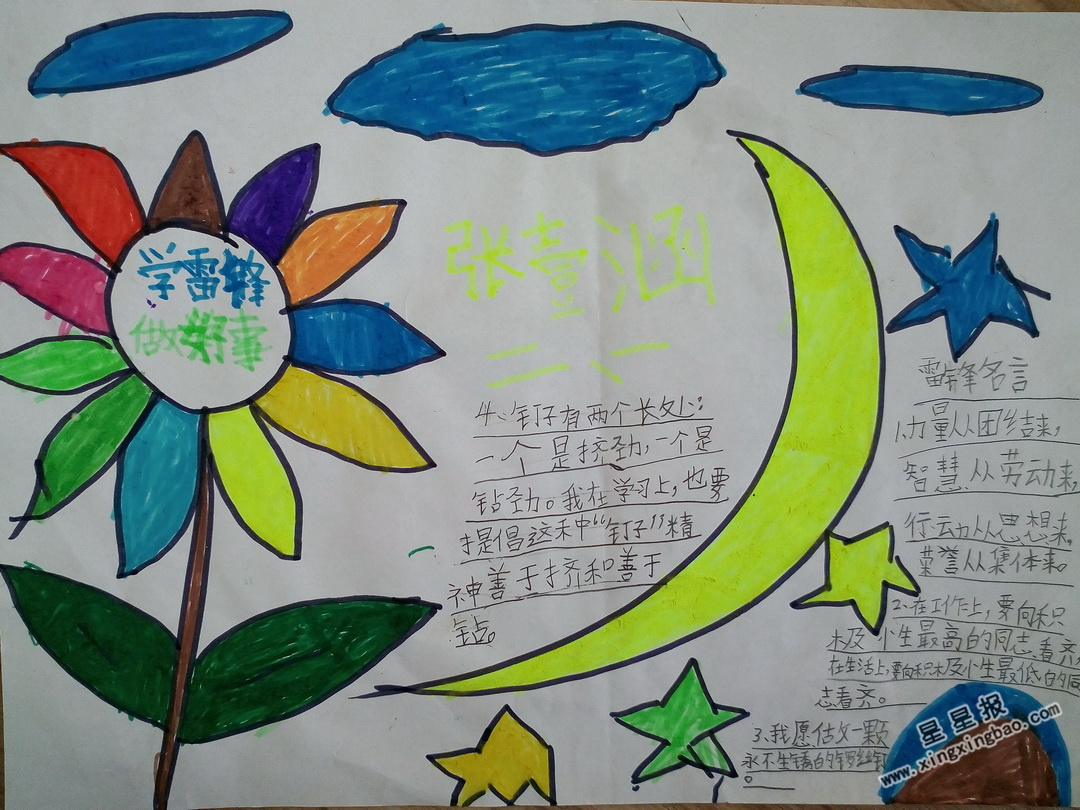 学雷锋
做好事
张壹涵
二、一
4、钉子有两个长处:
一个是挤劲,一个是
钻劲。我在学习上,也要
提倡这种“钉子”精
神善于挤和善于
钻。
雷锋名言
1.力量从团结来,
智慧从劳动来,
行动从思想来,
荣誉从集体来。
2、在工作上,要向积
极 性最高的同志看齐,
在生活上,要向积极性最低的同
志看齐。
3、我愿做一颗
永不生锈的螺丝钉
。
星星报
www.xingxingbao.com